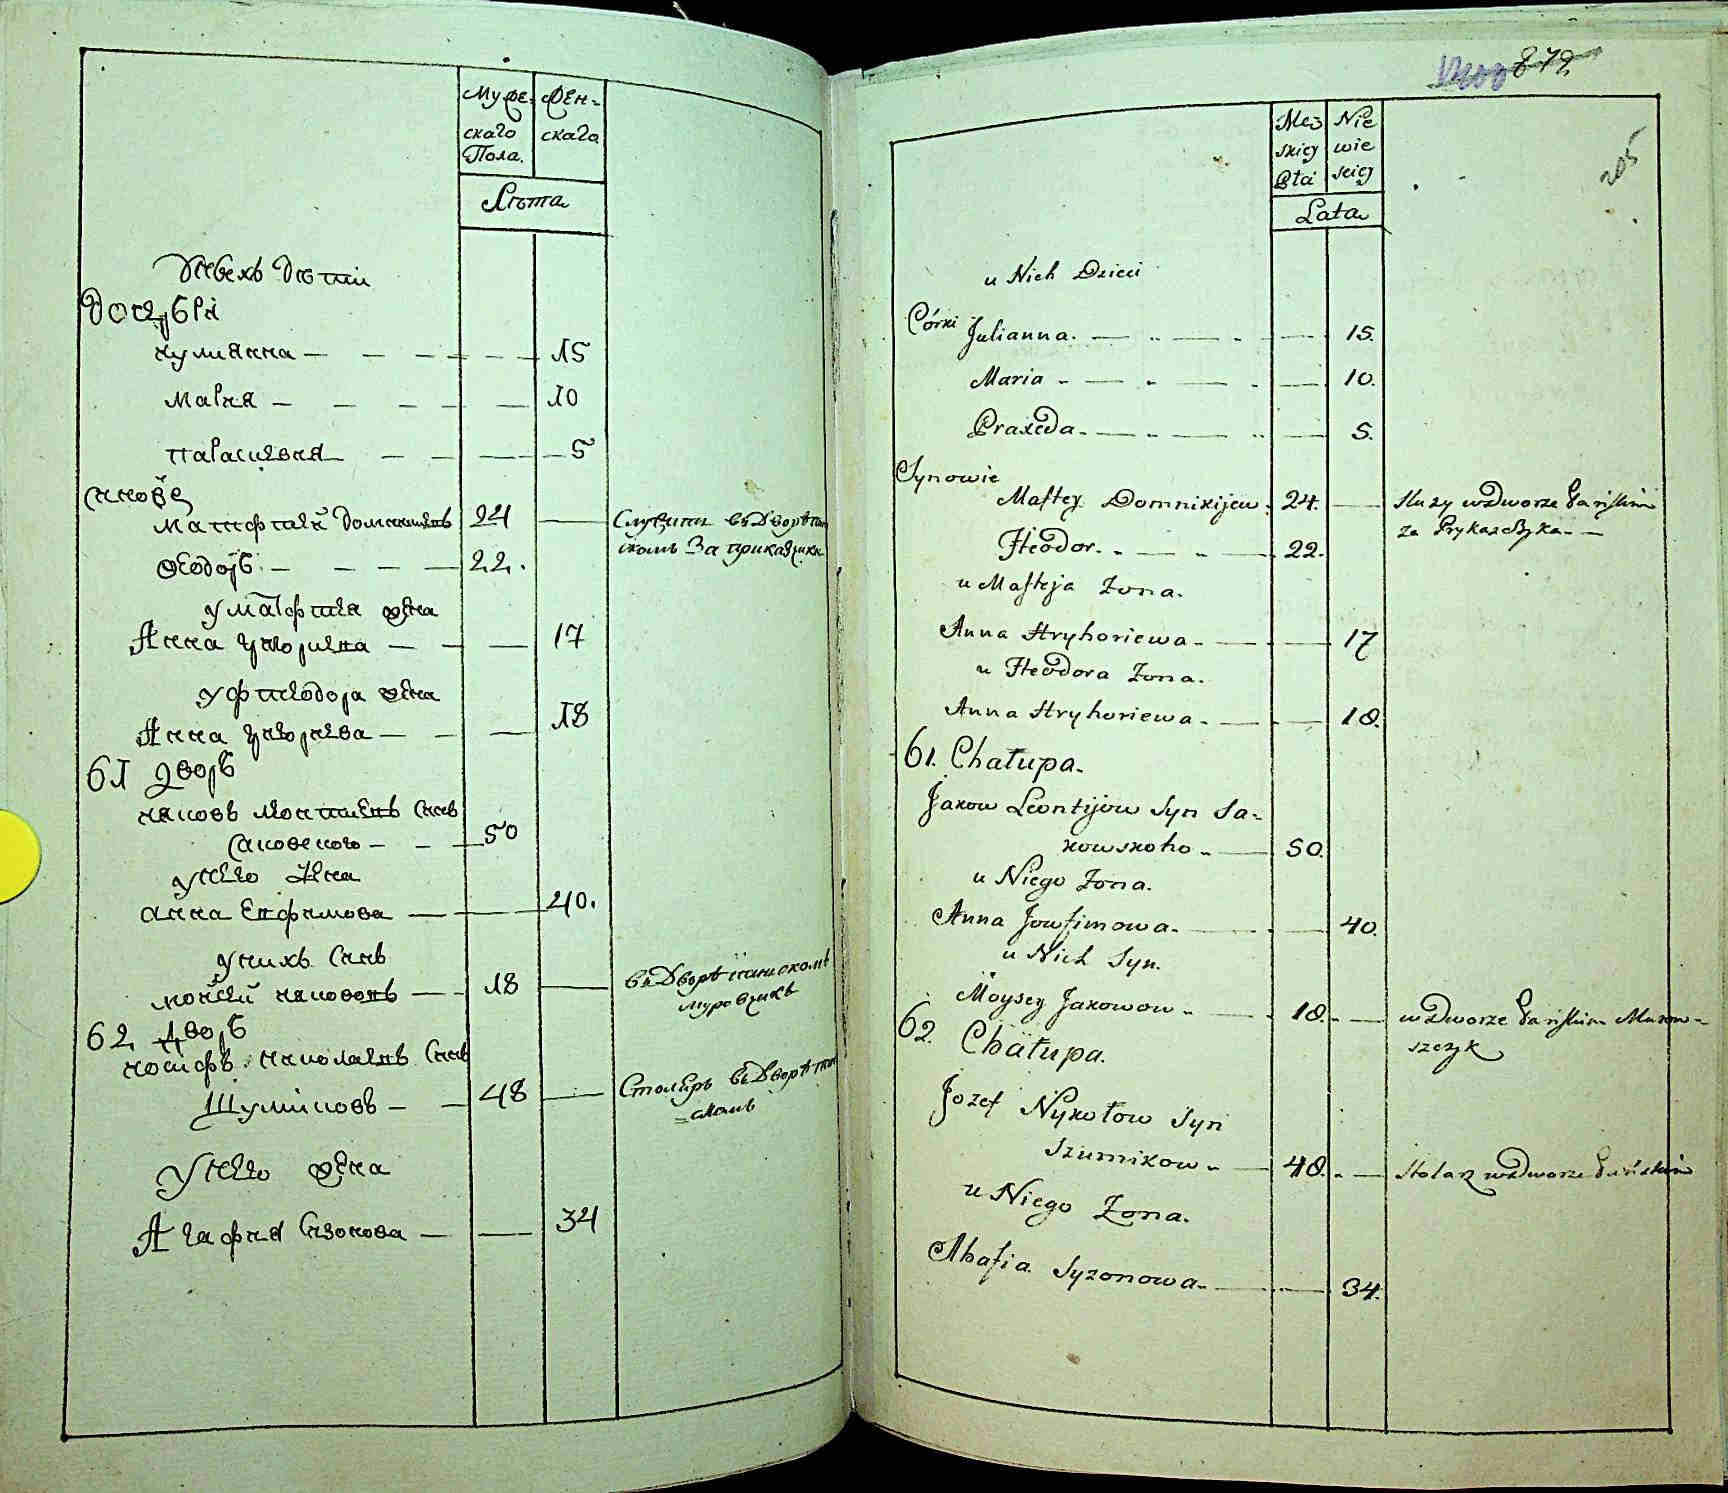 Муже-
скаго
Пола.
Жен-
скаго
Лѣта
У нихъ дѣти
Дочери
иулианна — — — — — 15
мария — — — — 10
параскевия — — — — 5
синове
матфтей доминиевъ 24 — Служитъ въ Дворѣ пан
скомъ За прикащика
Ѳеодоръ — — — — 22.
у матфтея жена
Анна григориева — — — 17
у фтеодора жена
Анна григориева — — — 18
61 дворъ
иаковъ леонтиевъ синъ
Саковского — — — 50
у него жена
анна Евфимова — — 40.
у нихъ синъ
мойсей иакововъ — — 18 — въ Дворѣ панскомъ
муровщикъ
62 дворъ
иосифъ николаевъ синъ
Шумиковъ — — 48 — Столяръ въ Дворѣ пан
=скомъ
У него жена
Агафия Сизонова — — 34
872
205
Męz
skiey
Płci
Nie
wie
sciej
Lata
u Nich Dzieci
Córki
Julianna. — — — 15.
Maria — — — 10.
Praxeda. — — — 5.
Synowie
Maftey Domnikijew. 24. — Służy w Dworze Pańskim
za Prykaszczyka. —
Fteodor. — — 22.
u Mafteja Zona.
Anna Hryhoriewa — — 17
u Fteodora Zona.
Anna Hryhoriewa — — 18.
61. Chałupa.
Jakow Leontijow Syn Sa-
kowskoho — 50.
u Niego Zona.
Anna Jowfimowa. — — 40.
u Nich Syn.
Moysey Jakowow — 18. — w Dworze Pańskim Murow-
szczyk
62. Chałupa.
Jozef Nykołow Syn
Szumikow — 48. — Stolarz w Dworze Pańskim
u Niego Zona.
Ahafia Syzonowa — — 34.